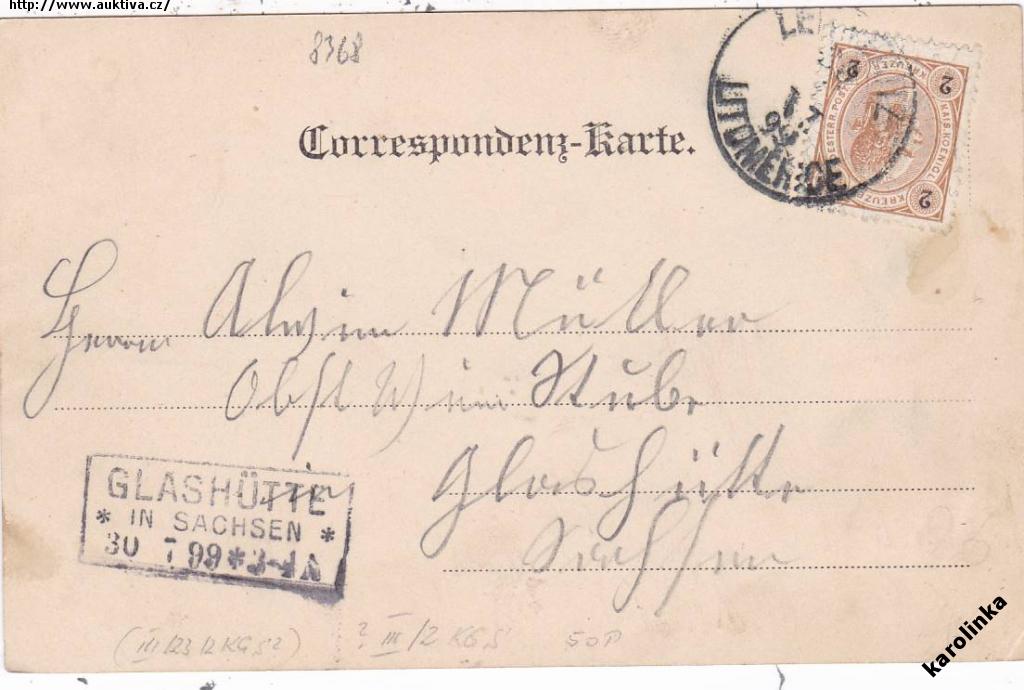 http://www.auktiva.cz/
8368
Correspondenz-Karte.
LE Z
LITOMĚŘICE
2 KREUZER 2
KAIS. KOENIGL.
ESTERR. POST
2 KREUZE
Herrn Alwin Müller
Obst Wein Stube
Glashütte
in Sachsen
GLASHÜTTE
* IN SACHSEN *
30 7 99 * 3-4 N
(III/23/2 KG S?) ? III/2 KG S 50P
karolinka